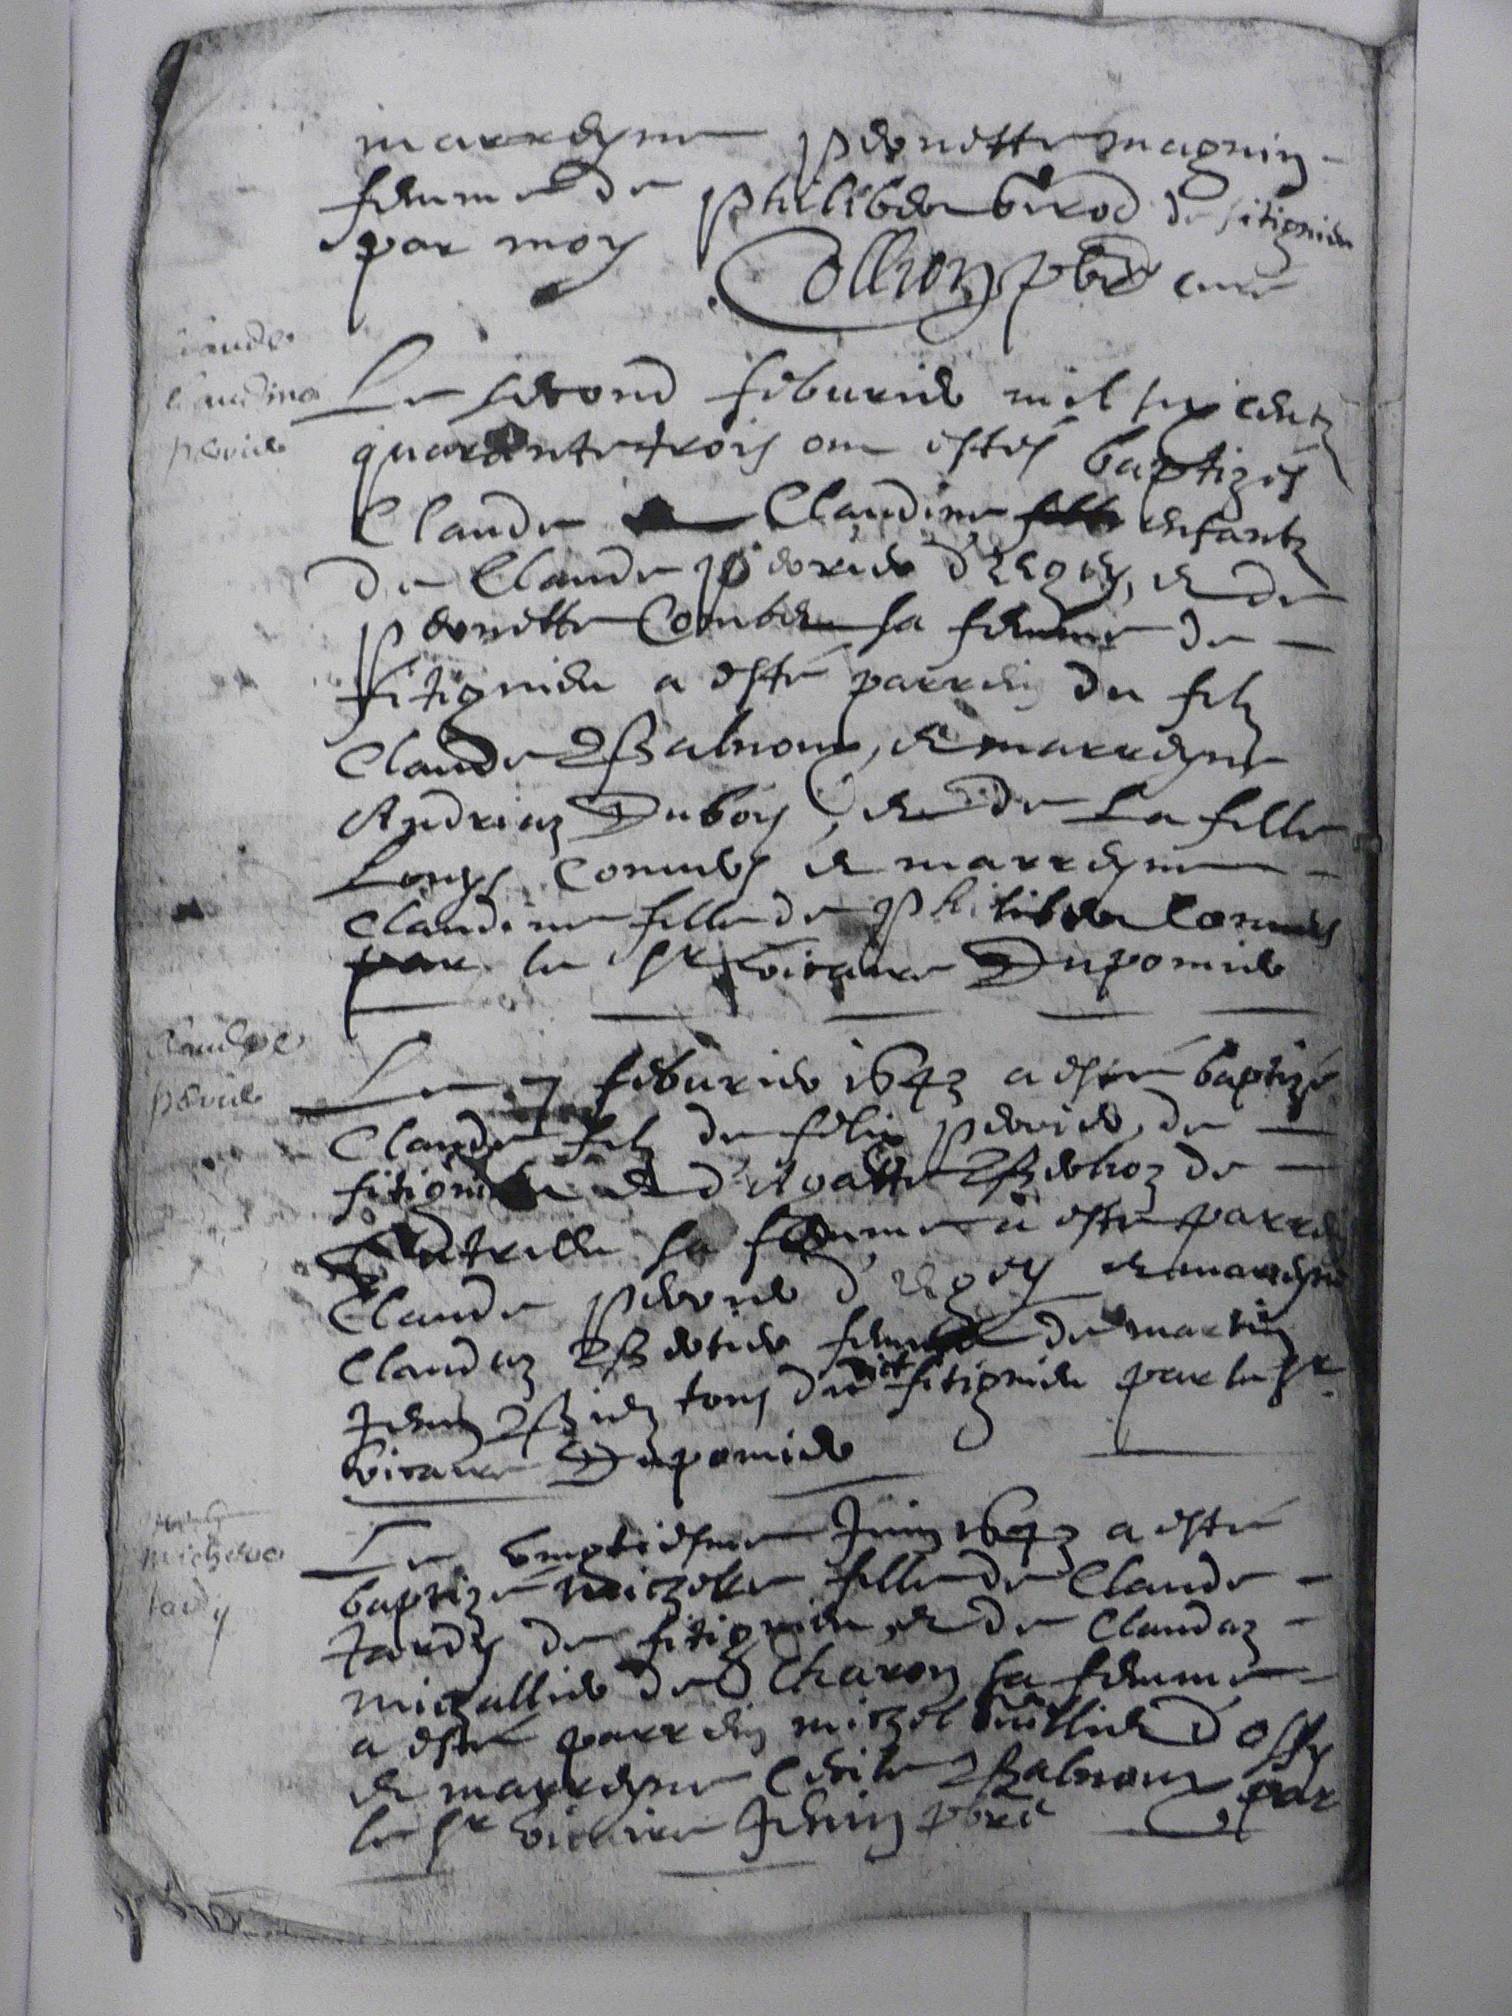 marreyne Pernette Magnin
femme de Philiber Berod de fitignieu
par moy Collion pbre curé
Claude
Claudine
pervier
Le second feburier mil six centz
quarante trois ont estés baptizés
Claude Claudine enfantz
de Claude pervier d'Ergey, et de
pernette Combet sa femme de
fitignieu a esté parrein du filz
Claude Balvoux, et marreyne
Andriaz Duboys, et de La fille
Louys Cornuds et marreyne
Claudine fille de Philiber Cornuds
par le Sr vicaire Dupomier
Claude
pervier
Le 7 feburier 1643 a esté baptizé
Claude filz de felix pervier, de
fitignieu et d'Agatte de
sa femme a esté parrein
Claude pervier d'Ergey et marreyne
Claudaz femme de martin
tous dudict fitignieu par le Sr
vicaire Dupomier
Michelle
tardy
Le vingtiesme Juin 1643 a esté
baptizé Michelle fille de Claude
tardy de fitignieu, et de Claudaz
michallier de Charon sa femme
a esté parrein michel d'ossy
et marreyne Cecile Balvoux par
le Sr vicaire Jenin pbre